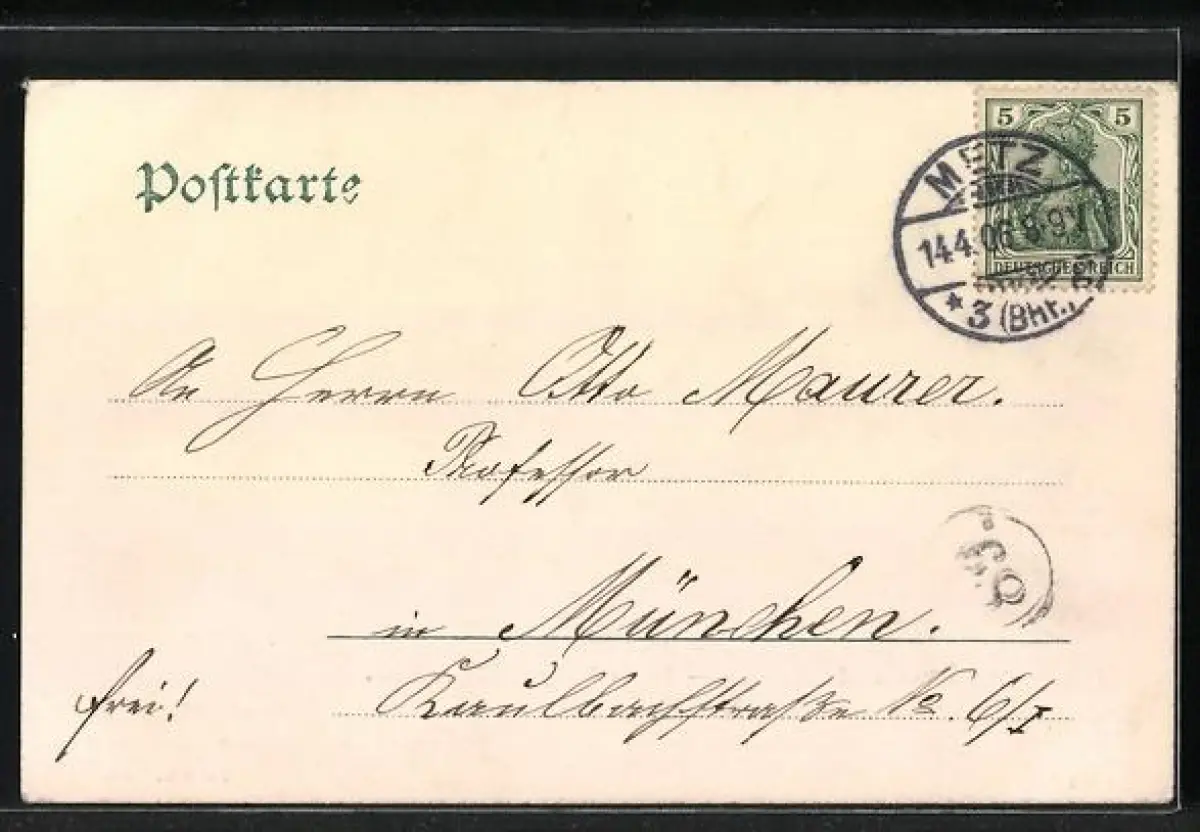 Postkarte
5 5
DEUTSCHES REICH
METZ
14.4.06 8-9V
* 3 (Bhf.)
An Herrn Otto Maurer.
Professor
in München.
frei!
Kaulbachstraße No. 6/I